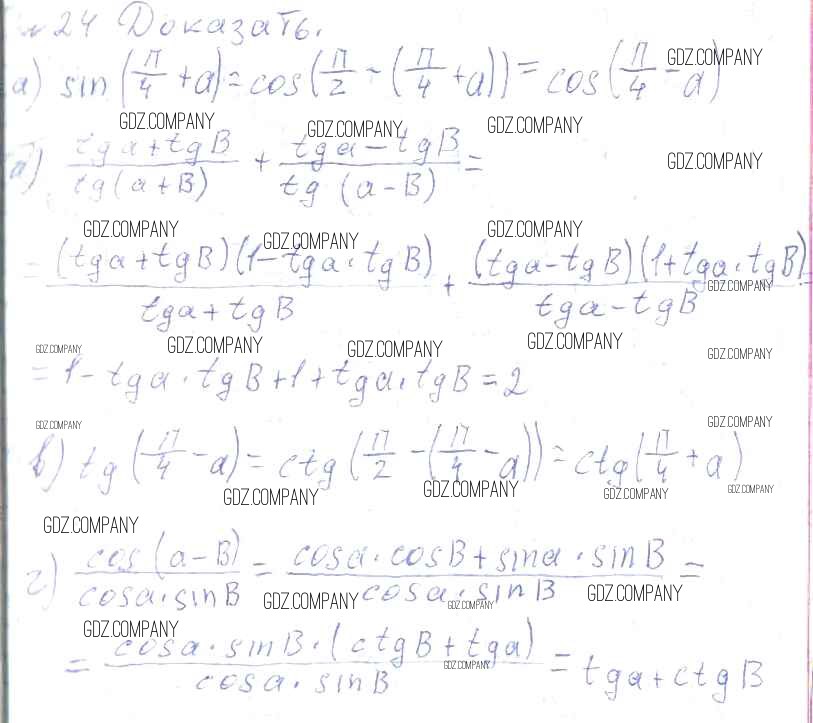 № 24 Доказать.
а) sin (π/4 + a) = cos (π/2 - (π/4 + a)) = cos (π/4 - a)
GDZ.COMPANY
GDZ.COMPANY GDZ.COMPANY GDZ.COMPANY
(tga + tgB)/(tg(a+B)) + (tga - tgB)/(tg (a-B)) =
GDZ.COMPANY
GDZ.COMPANY GDZ.COMPANY GDZ.COMPANY
= ((tga + tgB)(1 - tga · tgB))/(tga + tgB) + ((tga - tgB)(1 + tga · tgB))/(tga - tgB) =
GDZ.COMPANY
GDZ.COMPANY GDZ.COMPANY GDZ.COMPANY GDZ.COMPANY GDZ.COMPANY
= 1 - tga · tgB + 1 + tga · tgB = 2
GDZ.COMPANY GDZ.COMPANY
в) tg (π/4 - a) = ctg (π/2 - (π/4 - a)) = ctg (π/4 + a)
GDZ.COMPANY GDZ.COMPANY GDZ.COMPANY GDZ.COMPANY
GDZ.COMPANY
г) (cos (a-B))/(cosa · sinB) = (cosa · cosB + sina · sinB)/(cosa · sinB) =
GDZ.COMPANY GDZ.COMPANY GDZ.COMPANY
GDZ.COMPANY
= (cosa · sinB · (ctgB + tga))/(cosa · sinB) = tga + ctgB
GDZ.COMPANY